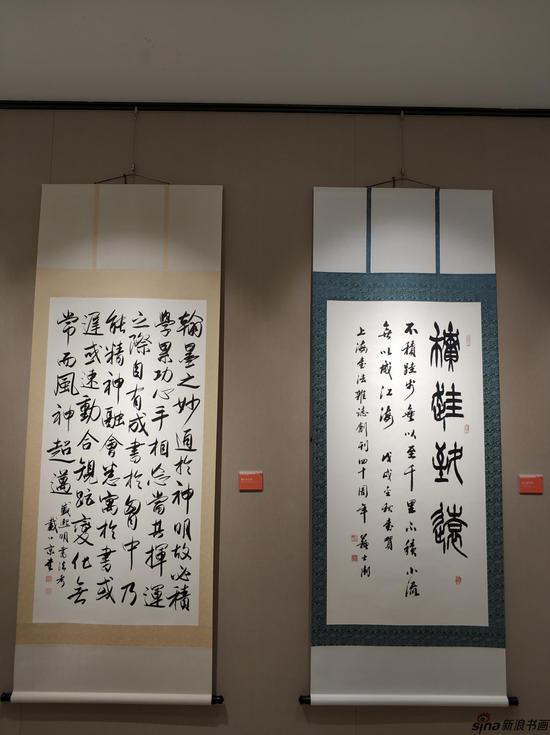 翰墨之妙通於神明故必積
學累功心手相忘當其揮運
之際自有成書於胸中乃
能精神融會悉寓於書或
遲或速動合規矩變化無
常而風神超邁
盛熙明書法考
戴小京書
積跬致遠
不積跬步無以至千里不積小流
無以成江海 戊戌金秋書賀
上海書法雜誌創刊四十周年 蘇士澍
sina新浪书画